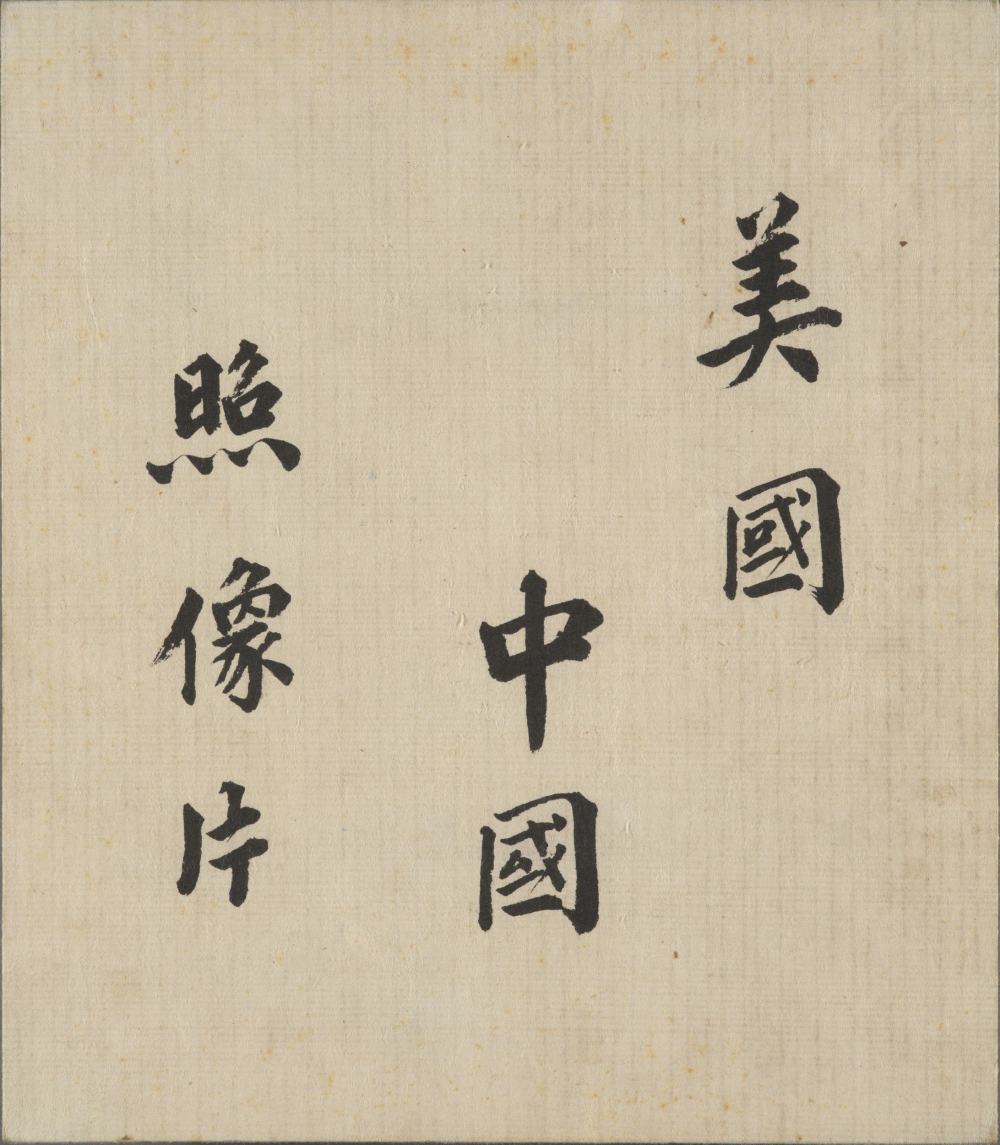 美國
中國
照像片